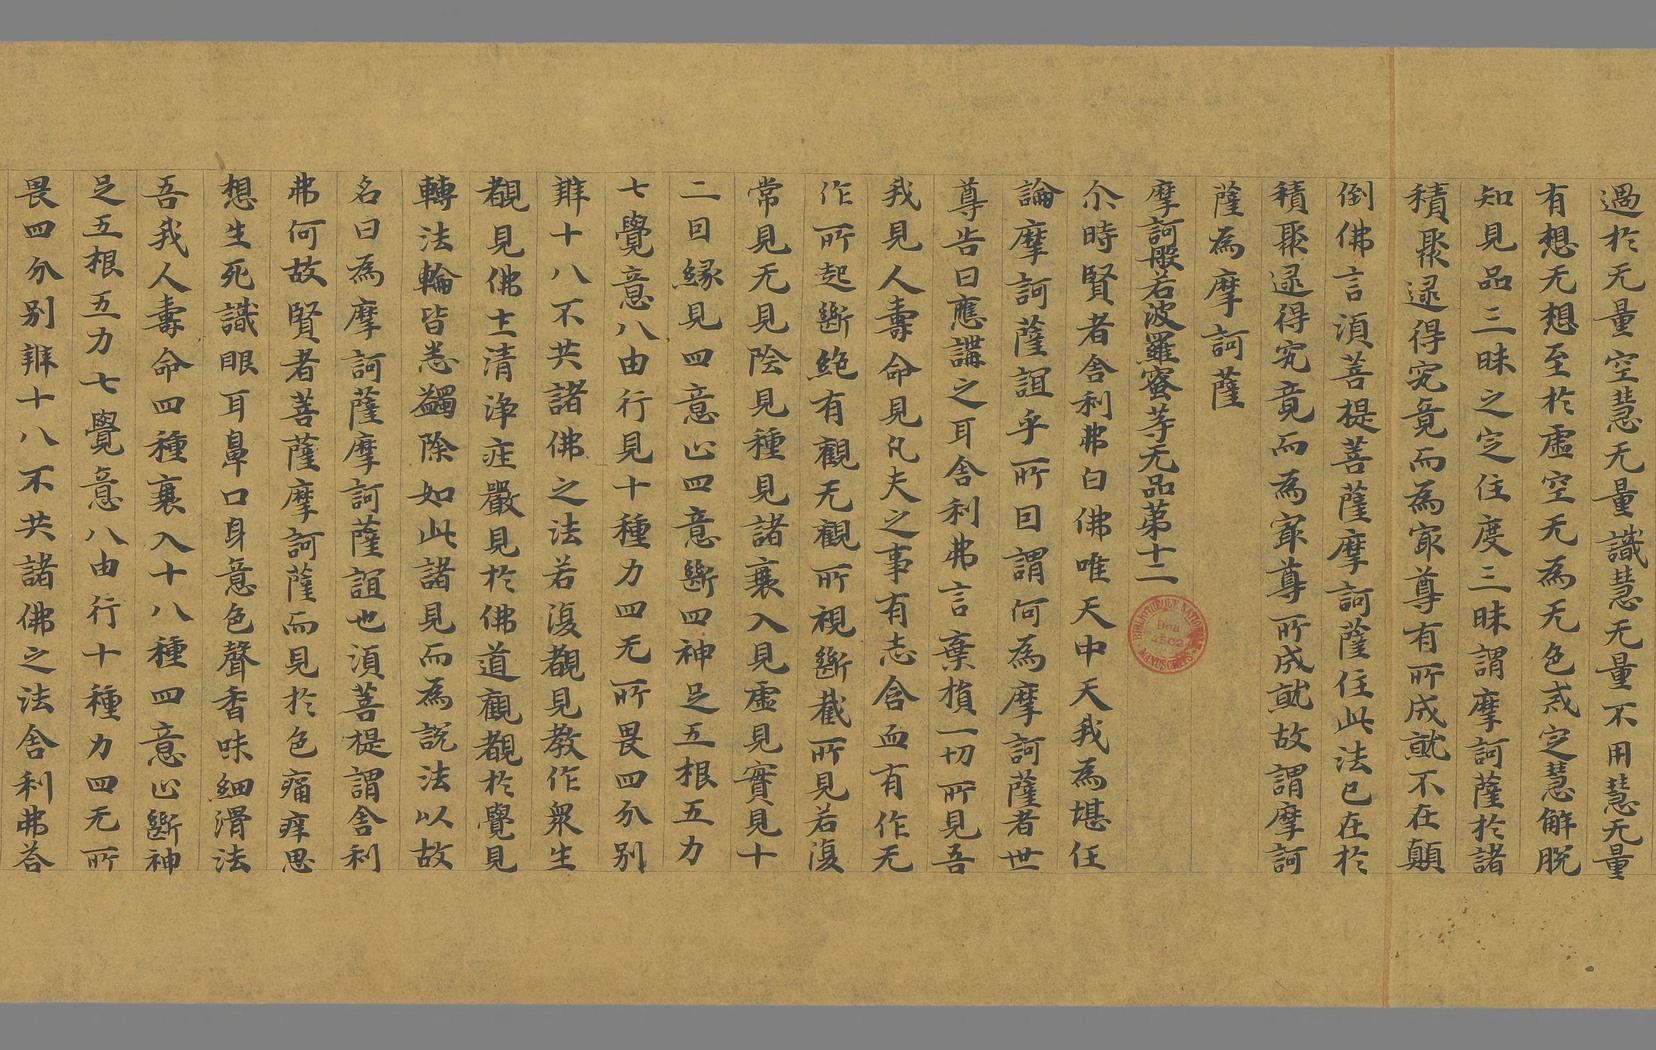 過於无量空慧无量識慧无量不用慧无量
有想无想至於虛空无為无色惑定慧解脫
知見品三昧之定住度三昧謂摩訶薩於諸
積聚逮得究竟而為寂尊有所成就不在顛
倒佛言湏菩提菩薩摩訶薩住此法已在於
積聚逮得究竟而為寂尊所成就故謂摩訶
薩為摩訶薩
摩訶般若波羅蜜等无品苐十二
尒時賢者舍利弗白佛唯天中天我為堪任
論摩訶薩誼乎所因謂何為摩訶薩者世
尊告曰應講之耳舍利弗言棄損一切所見吾
我見人壽命見凡夫之事有志含血有作无
作所起斷絶有觀无觀所視斷截所見若復
常見无見陰見種見諸衰入見虛見實見十
二因緣見四意止四意斷四神足五根五力
七覺意八由行見十種力四无所畏四分別
辨十八不共諸佛之法若復覩見教作衆生
覩見佛土清淨莊嚴見於佛道觀覩於覺見
轉法輪皆悉蠲除如此諸見而為說法以故
名曰為摩訶薩摩訶薩誼也湏菩提謂舍利
弗何故賢者菩薩摩訶薩而見於色痛痒思
想生死識眼耳鼻口身意色聲香味細滑法
吾我人壽命四種衰入十八種四意止斷神
足五根五力七覺意八由行十種力四无所
畏四分別辨十八不共諸佛之法舍利弗荅
BIBLIOTHÈQUE NATIONALE
MANUSCRITS
Don
4502